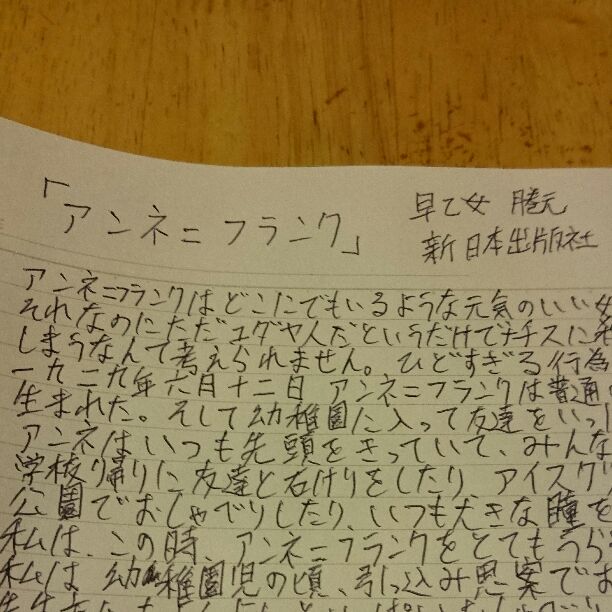 「アンネ=フランク」
早乙女 勝元
新日本出版社
アンネ=フランクはどこにでもいるような元気のいい女
それなのにただユダヤ人だというだけでナチスに
しまうなんて考えられません。ひどすぎる行為
一九二九年六月十二日 アンネ=フランクは普通
生まれた。そして幼稚園に入って友達をいっ
アンネはいつも先頭をきっていて、みんな
学校帰りに友達と石けりをしたり アイスクリ
公園でおしゃべりしたり、いつも大きな瞳を
私は、この時、アンネ=フランクをとてもうら
私は 幼稚園児の頃、引っ込み思案でお